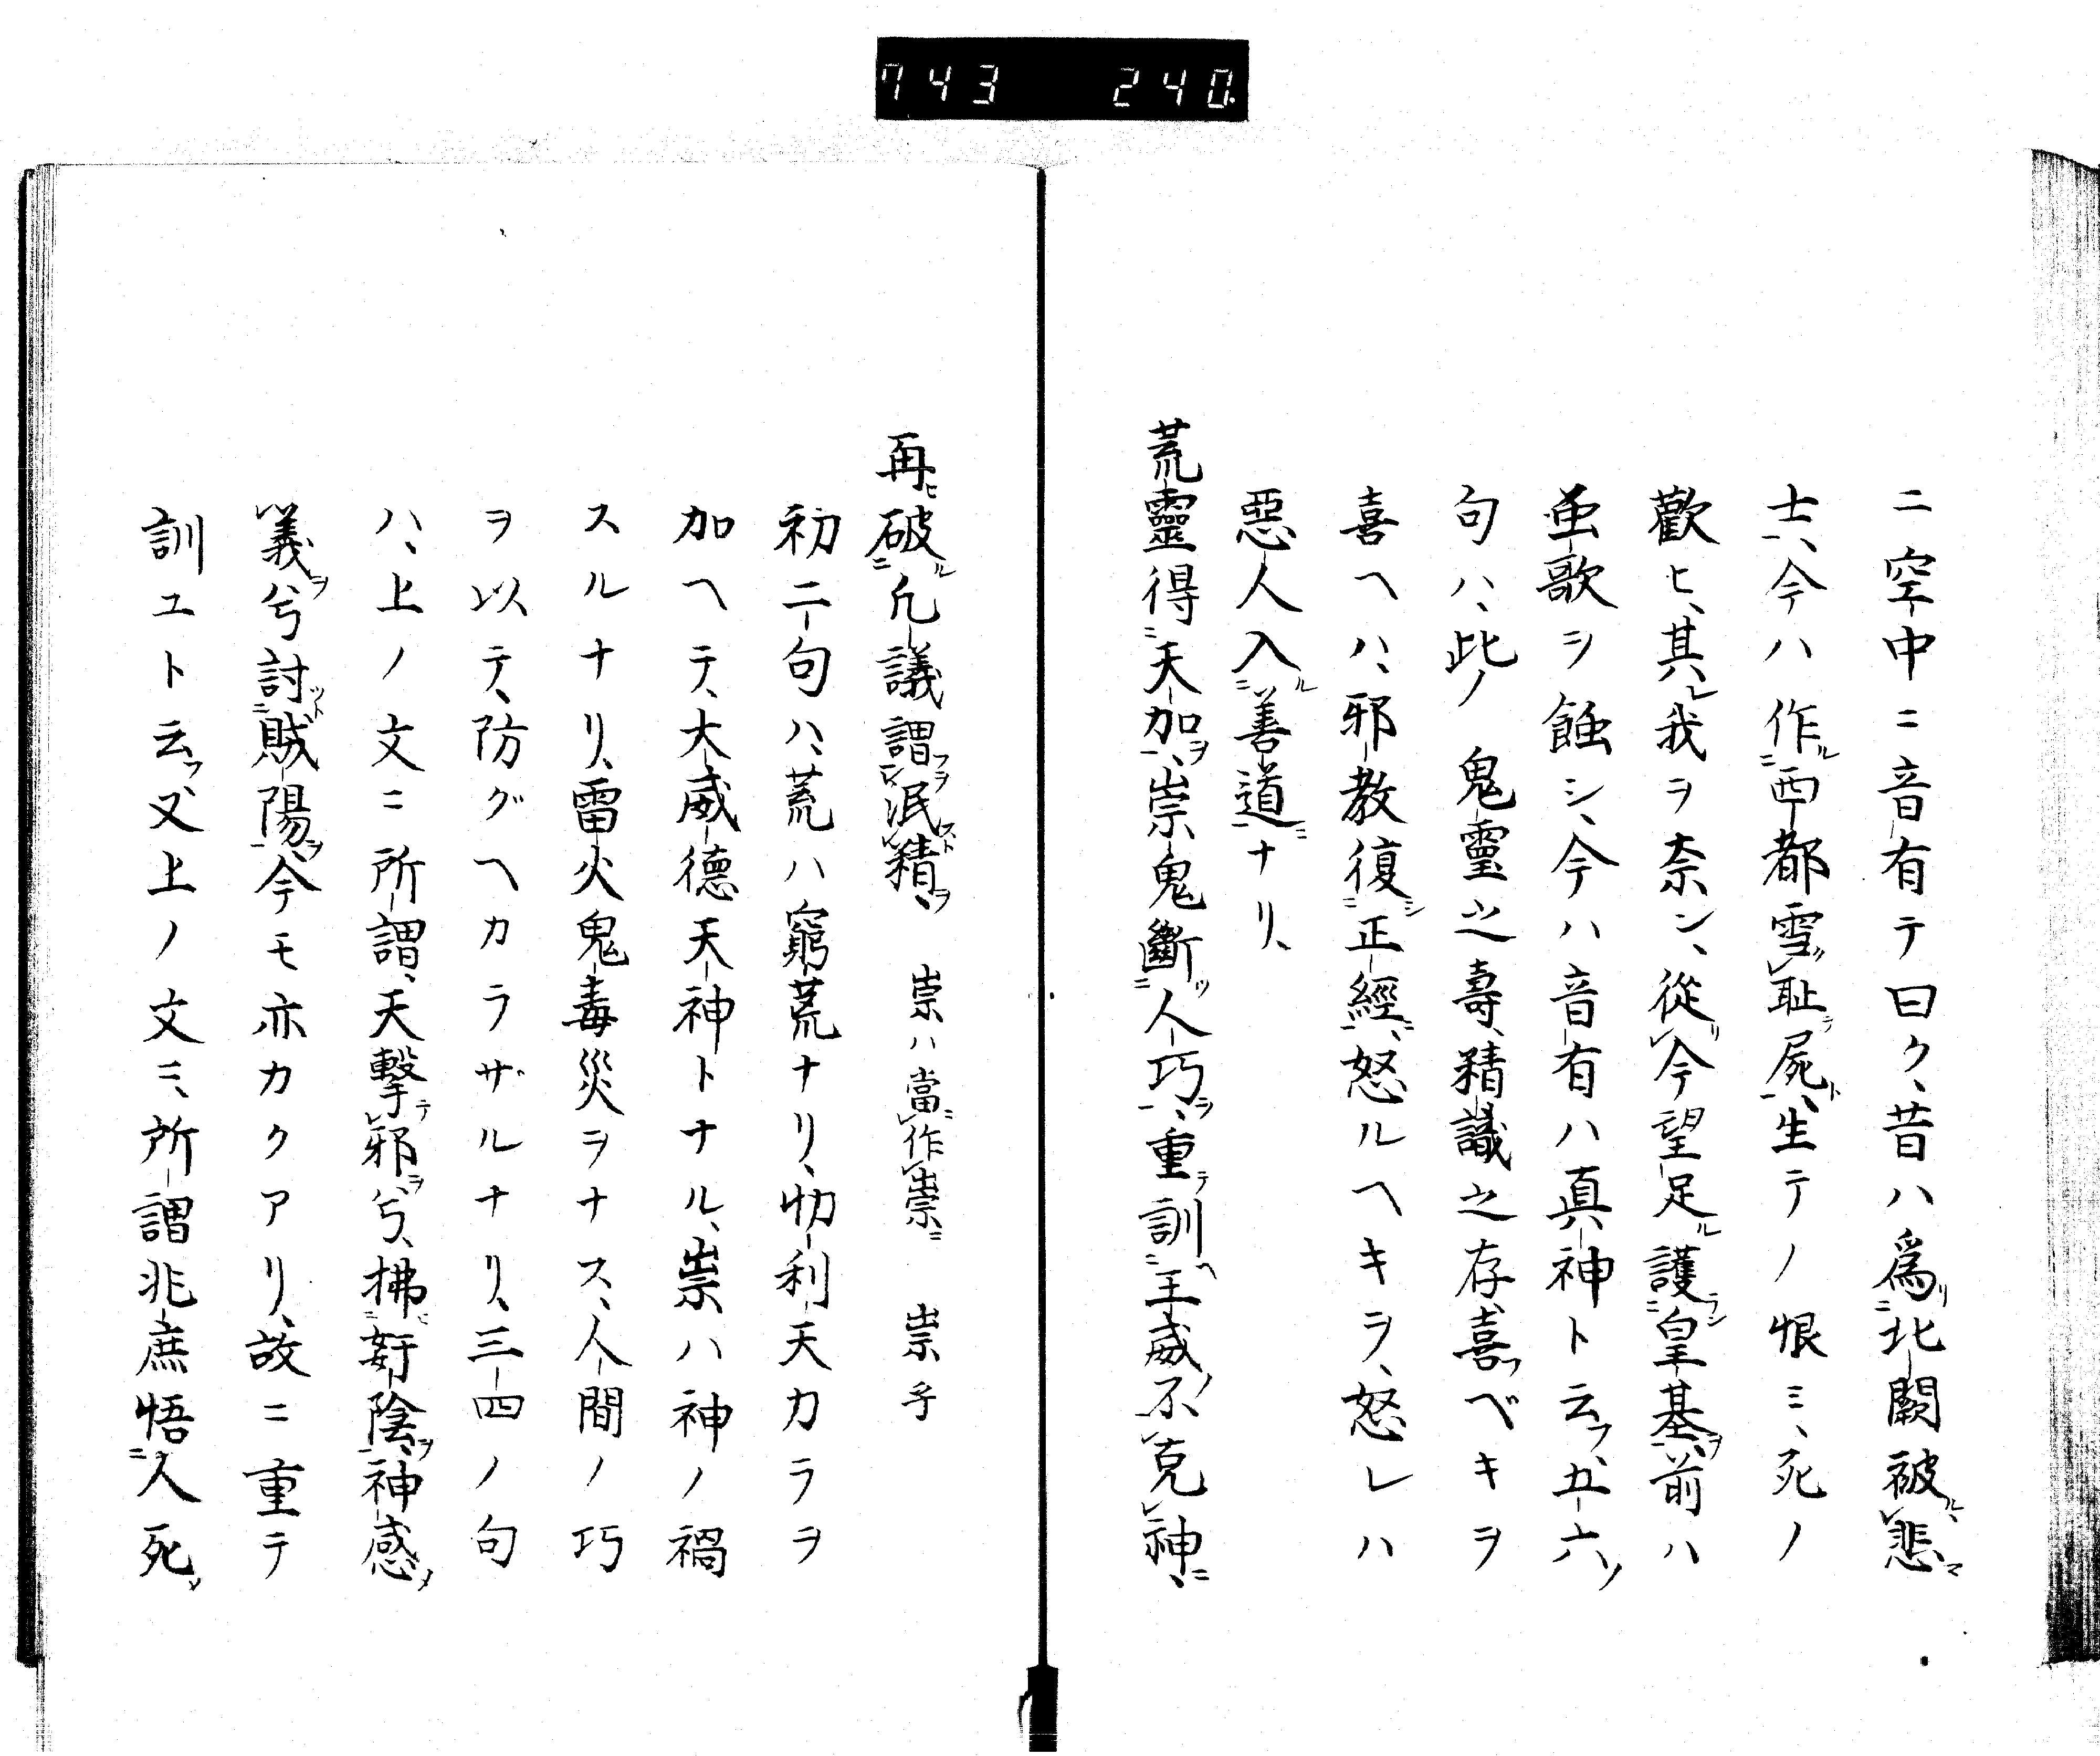 743 240
ニ空中ニ音有テ曰ク、昔ハ為北闕被悲
士、今ハ作西都雪恥屍、生テノ恨ミ、死ノ
歡ヒ、其我ヲ奈ン、從今望足護皇基、前ハ
虽歌ヲ蝕シ、今ハ音有ハ真神ト云フ、五六
句ハ、此ノ鬼靈之壽、精識之存、喜フベキヲ
喜ヘハ、邪教復正經、怒ルヘキヲ、怒レハ
惡人入善道ナリ、
荒靈得天加、崇鬼斷人巧、重訓王威不克神、
再破凢議謂泯精、 崇ハ當作祟 祟乎
初二句ハ、荒ハ窮荒ナリ、忉利天力ラヲ
加ヘテ、大威德天神トナル、祟ハ神ノ禍
スルナリ、雷火鬼毒災ヲナス、人間ノ巧
ヲ以テ、防グヘカラザルナリ、三四ノ句
ハ、上ノ文ニ所謂、天擊邪兮、拂姧陰、神感
義兮討賊陽、今モ亦カクアリ、故ニ重テ
訓ユト云フ、又上ノ文ニ、所謂兆庶悟人死